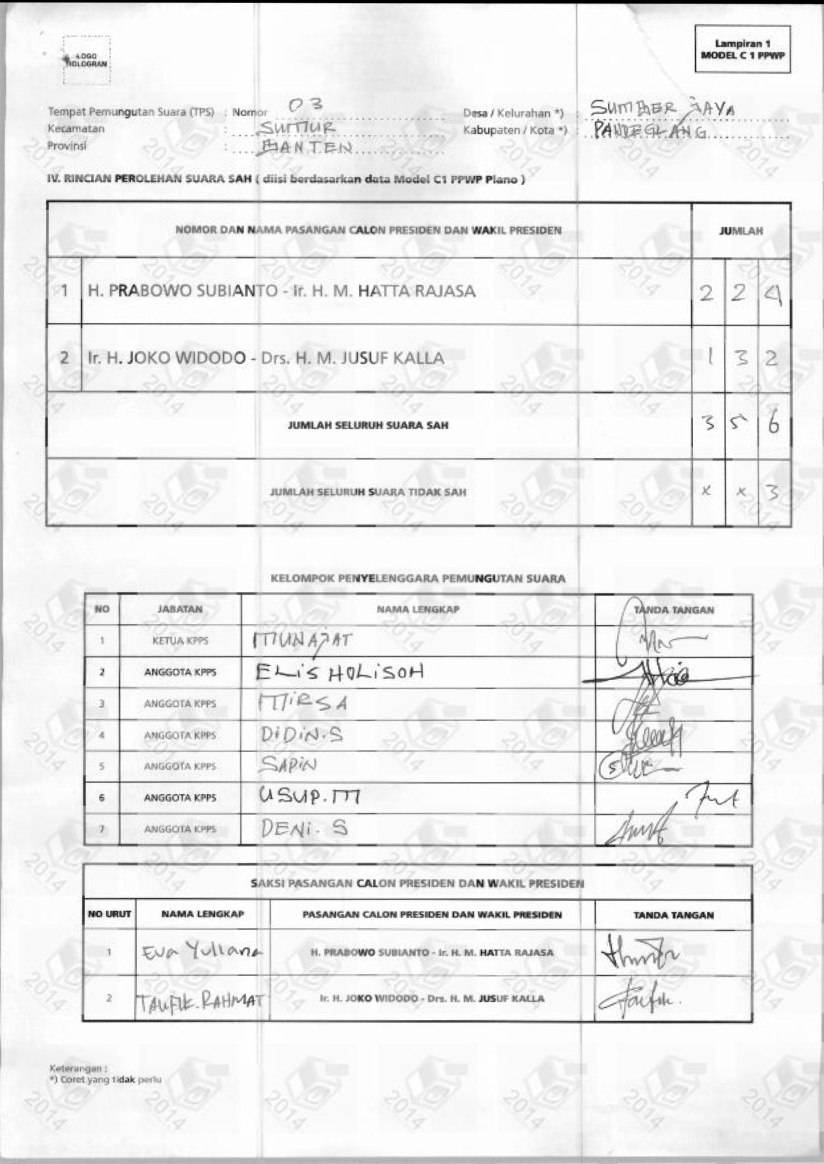 LOGO
HOLOGRAM
Lampiran 1
MODEL C 1 PPWP
Tempat Pemungutan Suara (TPS) : Nomor 03 Desa / Kelurahan *) : SUMBER JAYA
Kecamatan : SUMUR Kabupaten / Kota *) : PANDEGLANG
Provinsi : BANTEN
IV. RINCIAN PEROLEHAN SUARA SAH ( diisi berdasarkan data Model C1 PPWP Plano )
NOMOR DAN NAMA PASANGAN CALON PRESIDEN DAN WAKIL PRESIDEN JUMLAH
1 H. PRABOWO SUBIANTO - Ir. H. M. HATTA RAJASA 2 2 4
2 Ir. H. JOKO WIDODO - Drs. H. M. JUSUF KALLA 1 3 2
JUMLAH SELURUH SUARA SAH 3 5 6
JUMLAH SELURUH SUARA TIDAK SAH x x 3
KELOMPOK PENYELENGGARA PEMUNGUTAN SUARA
NO JABATAN NAMA LENGKAP TANDA TANGAN
1 KETUA KPPS MUNAJAT
2 ANGGOTA KPPS ELIS HOLISOH
3 ANGGOTA KPPS MIRSA
4 ANGGOTA KPPS DIDIN.S
5 ANGGOTA KPPS SAPIN
6 ANGGOTA KPPS USUP.M
7 ANGGOTA KPPS DENI. S
SAKSI PASANGAN CALON PRESIDEN DAN WAKIL PRESIDEN
NO URUT NAMA LENGKAP PASANGAN CALON PRESIDEN DAN WAKIL PRESIDEN TANDA TANGAN
1 Eva Yuliana H. PRABOWO SUBIANTO - Ir. H. M. HATTA RAJASA
2 TAUFIK.RAHMAT Ir. H. JOKO WIDODO - Drs. H. M. JUSUF KALLA Taufik.
Keterangan :
*) Coret yang tidak perlu